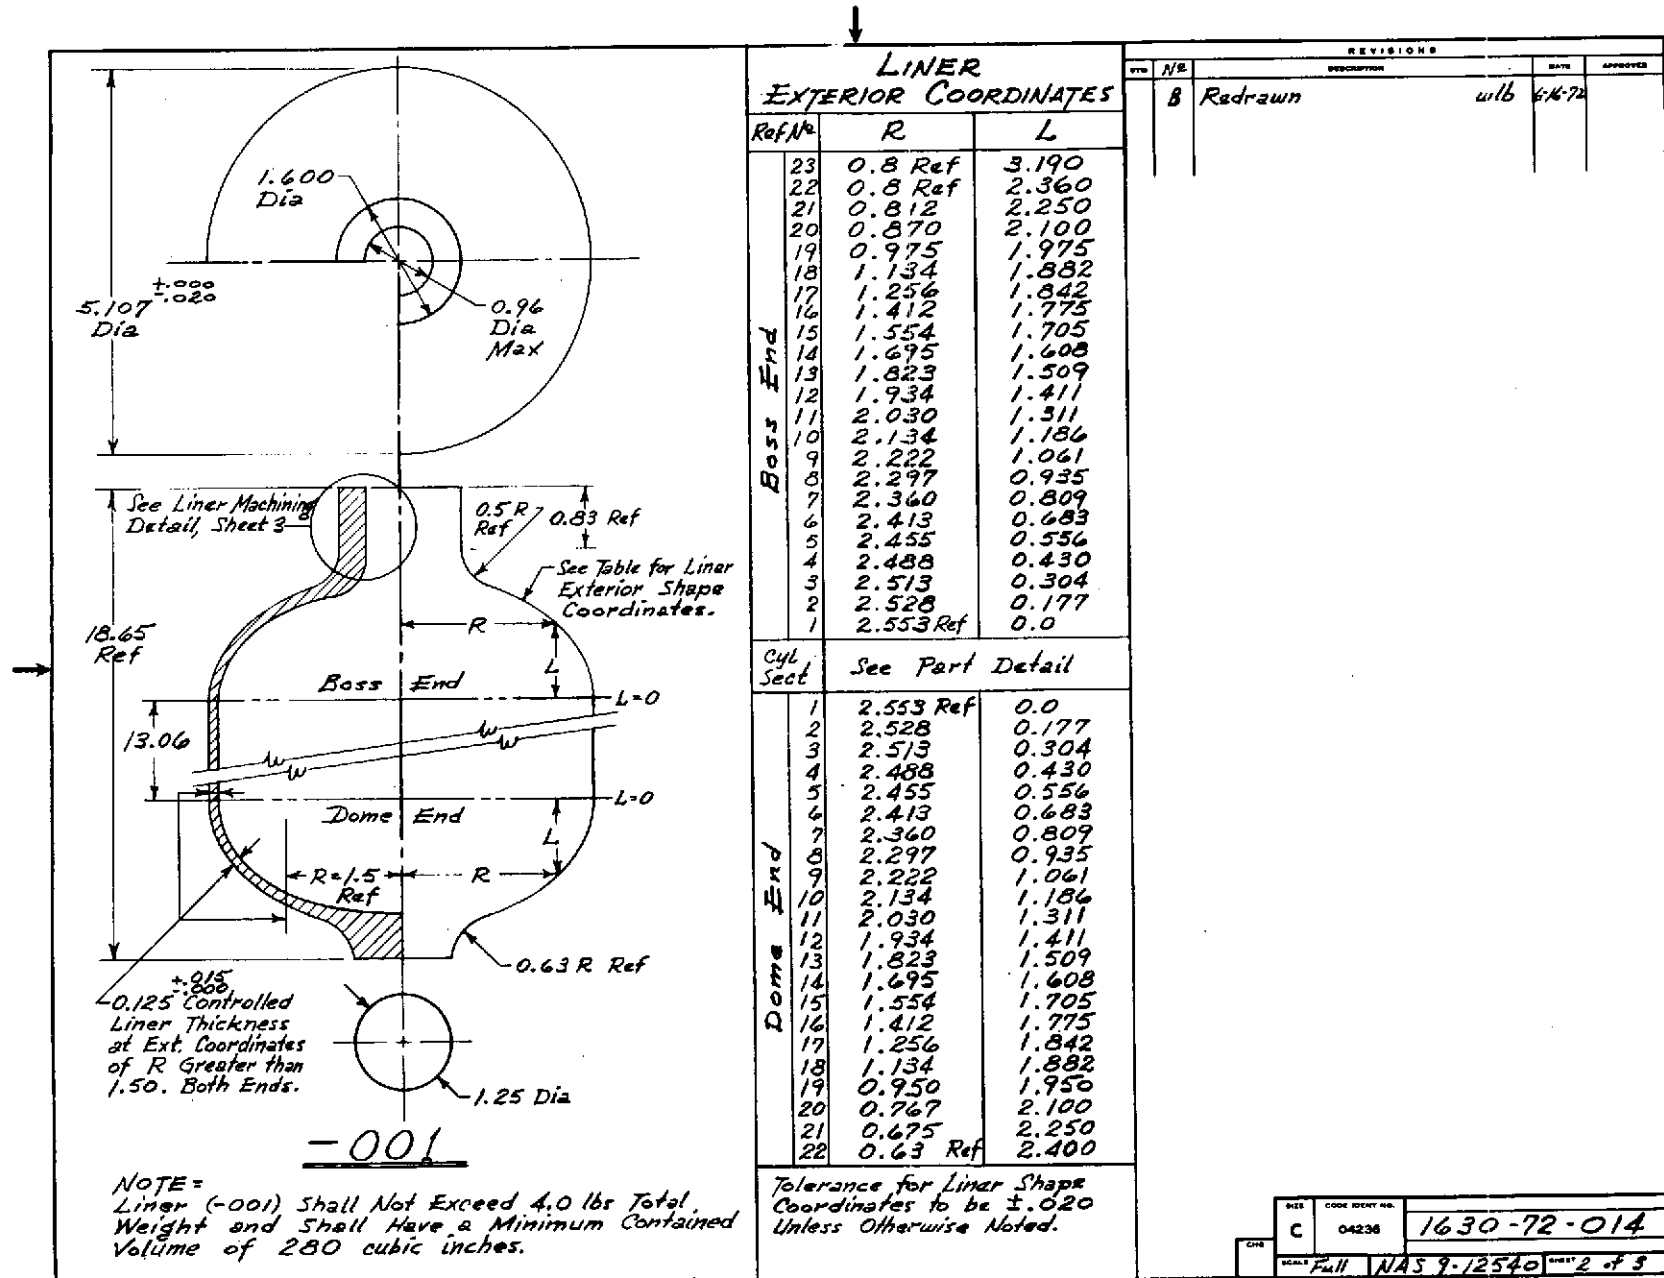 1.600
Dia
5.107 +.000
-.020
Dia
0.96
Dia
Max
See Liner Machining
Detail, Sheet 3
0.5 R
Ref
0.83 Ref
See Table for Liner
Exterior Shape
Coordinates.
18.65
Ref
R
L
Boss End
L=0
13.06
L=0
Dome End
L
R=1.5
Ref
R
0.63 R Ref
+.015
-.000
0.125 Controlled
Liner Thickness
at Ext. Coordinates
of R Greater than
1.50. Both Ends.
1.25 Dia
-001
NOTE=
Liner (-001) Shall Not Exceed 4.0 lbs Total
Weight and Shall Have a Minimum Contained
Volume of 280 cubic inches.
LINER
EXTERIOR COORDINATES
Ref No R L
Boss End
23 0.8 Ref 3.190
22 0.8 Ref 2.360
21 0.812 2.250
20 0.870 2.100
19 0.975 1.975
18 1.134 1.882
17 1.256 1.842
16 1.412 1.775
15 1.554 1.705
14 1.695 1.608
13 1.823 1.509
12 1.934 1.411
11 2.030 1.311
10 2.134 1.186
9 2.222 1.061
8 2.297 0.935
7 2.360 0.809
6 2.413 0.683
5 2.455 0.556
4 2.488 0.430
3 2.513 0.304
2 2.528 0.177
1 2.553 Ref 0.0
Cyl Sect See Part Detail
Dome End
1 2.553 Ref 0.0
2 2.528 0.177
3 2.513 0.304
4 2.488 0.430
5 2.455 0.556
6 2.413 0.683
7 2.360 0.809
8 2.297 0.935
9 2.222 1.061
10 2.134 1.186
11 2.030 1.311
12 1.934 1.411
13 1.823 1.509
14 1.695 1.608
15 1.554 1.705
16 1.412 1.775
17 1.256 1.842
18 1.134 1.882
19 0.950 1.950
20 0.767 2.100
21 0.675 2.250
22 0.63 Ref 2.400
Tolerance for Liner Shape
Coordinates to be ±.020
Unless Otherwise Noted.
REVISIONS
No DESCRIPTION DATE APPROVED
B Redrawn wlb 6-16-72
SIZE CODE IDENT NO.
C 04236 1630-72-014
CHG
SCALE Full NAS 9-12540 SHEET 2 of 3